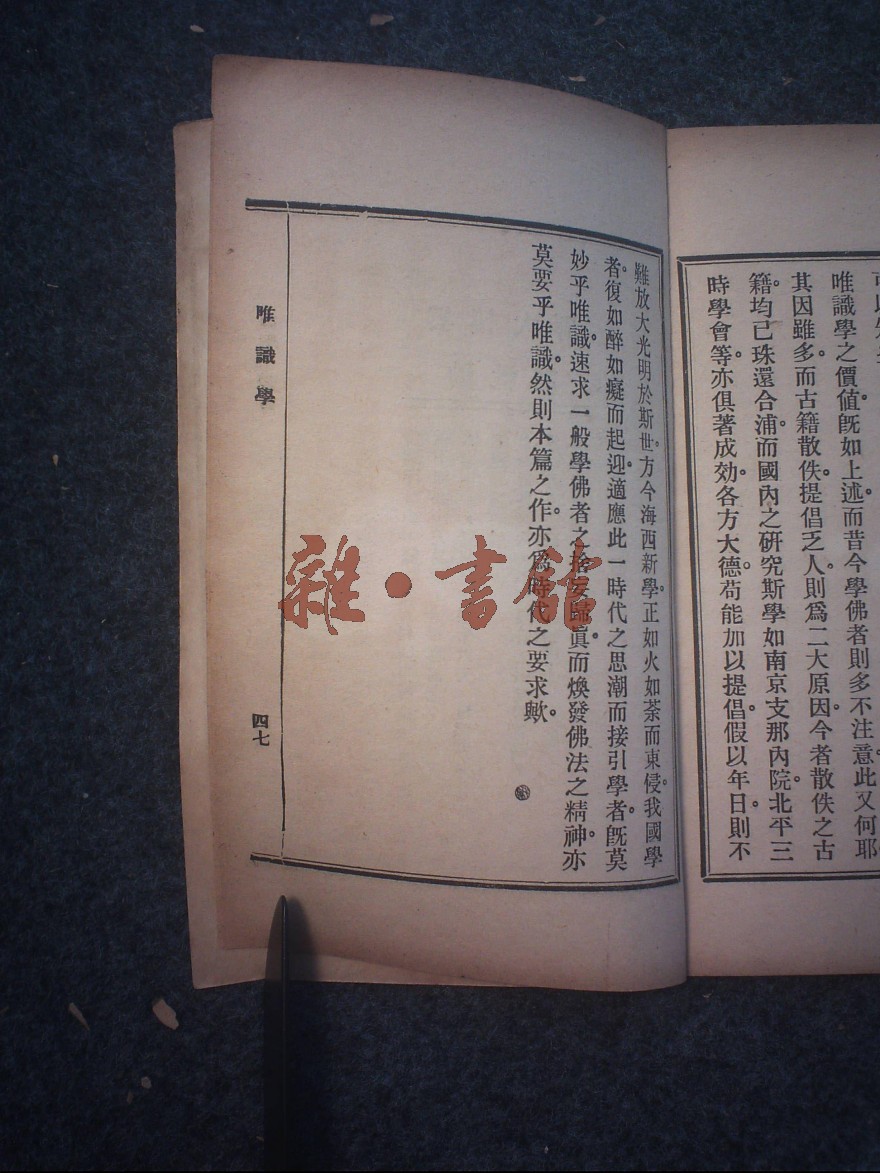 唯識學之價值。旣如上述。而昔今學佛者則多不注意。此又何耶
其因雖多。而古籍散佚。提倡乏人。則爲二大原因。今者散佚之古
籍。均已珠還合浦。而國內之硏究斯學如南京支那內院。北平三
時學會等。亦俱著成効。各方大德。苟能加以提倡。假以年日。則不
難放大光明於斯世。方今海西新學。正如火如荼而東侵。我國學
者。復如醉如癡而起迎。適應此一時代之思潮而接引學者。旣莫
妙乎唯識。速求一般學佛者之捨妄歸眞。而煥發佛法之精神。亦
莫要乎唯識。然則本篇之作。亦爲時代之要求歟。
唯識學
四七
雜·書館